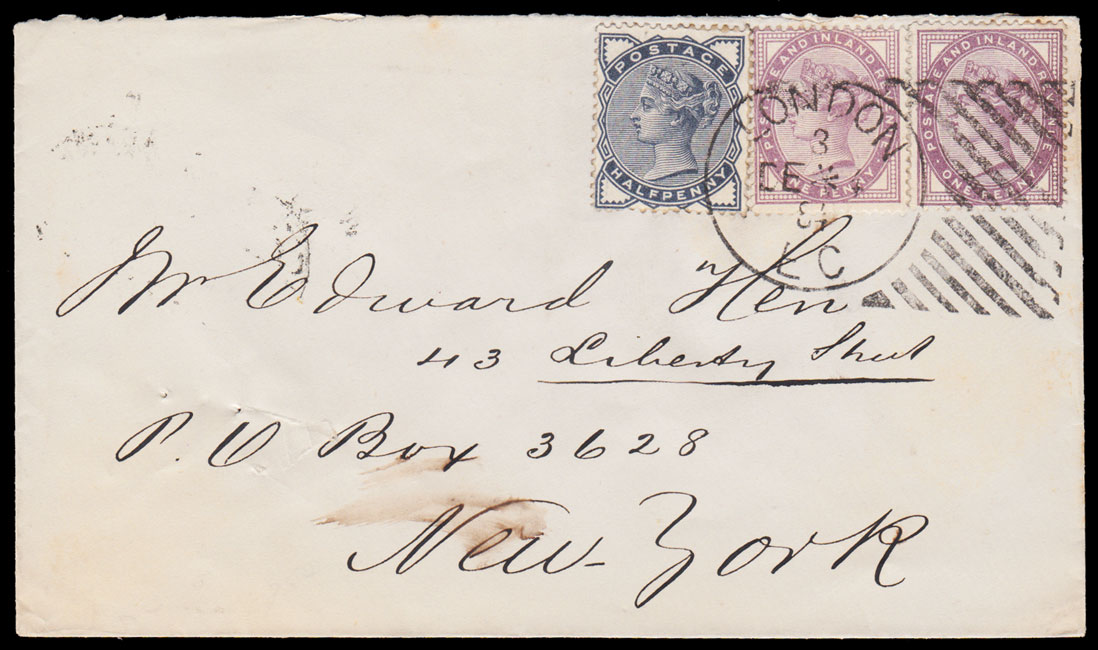 POSTAGE
HALFPENNY
POSTAGE AND INLAND REVENUE
ONE PENNY
POSTAGE AND INLAND REVENUE
ONE PENNY
LONDON
3
DE
EC
Mr Edward Hen
43 Liberty Street
P.O Box 3628
New-York